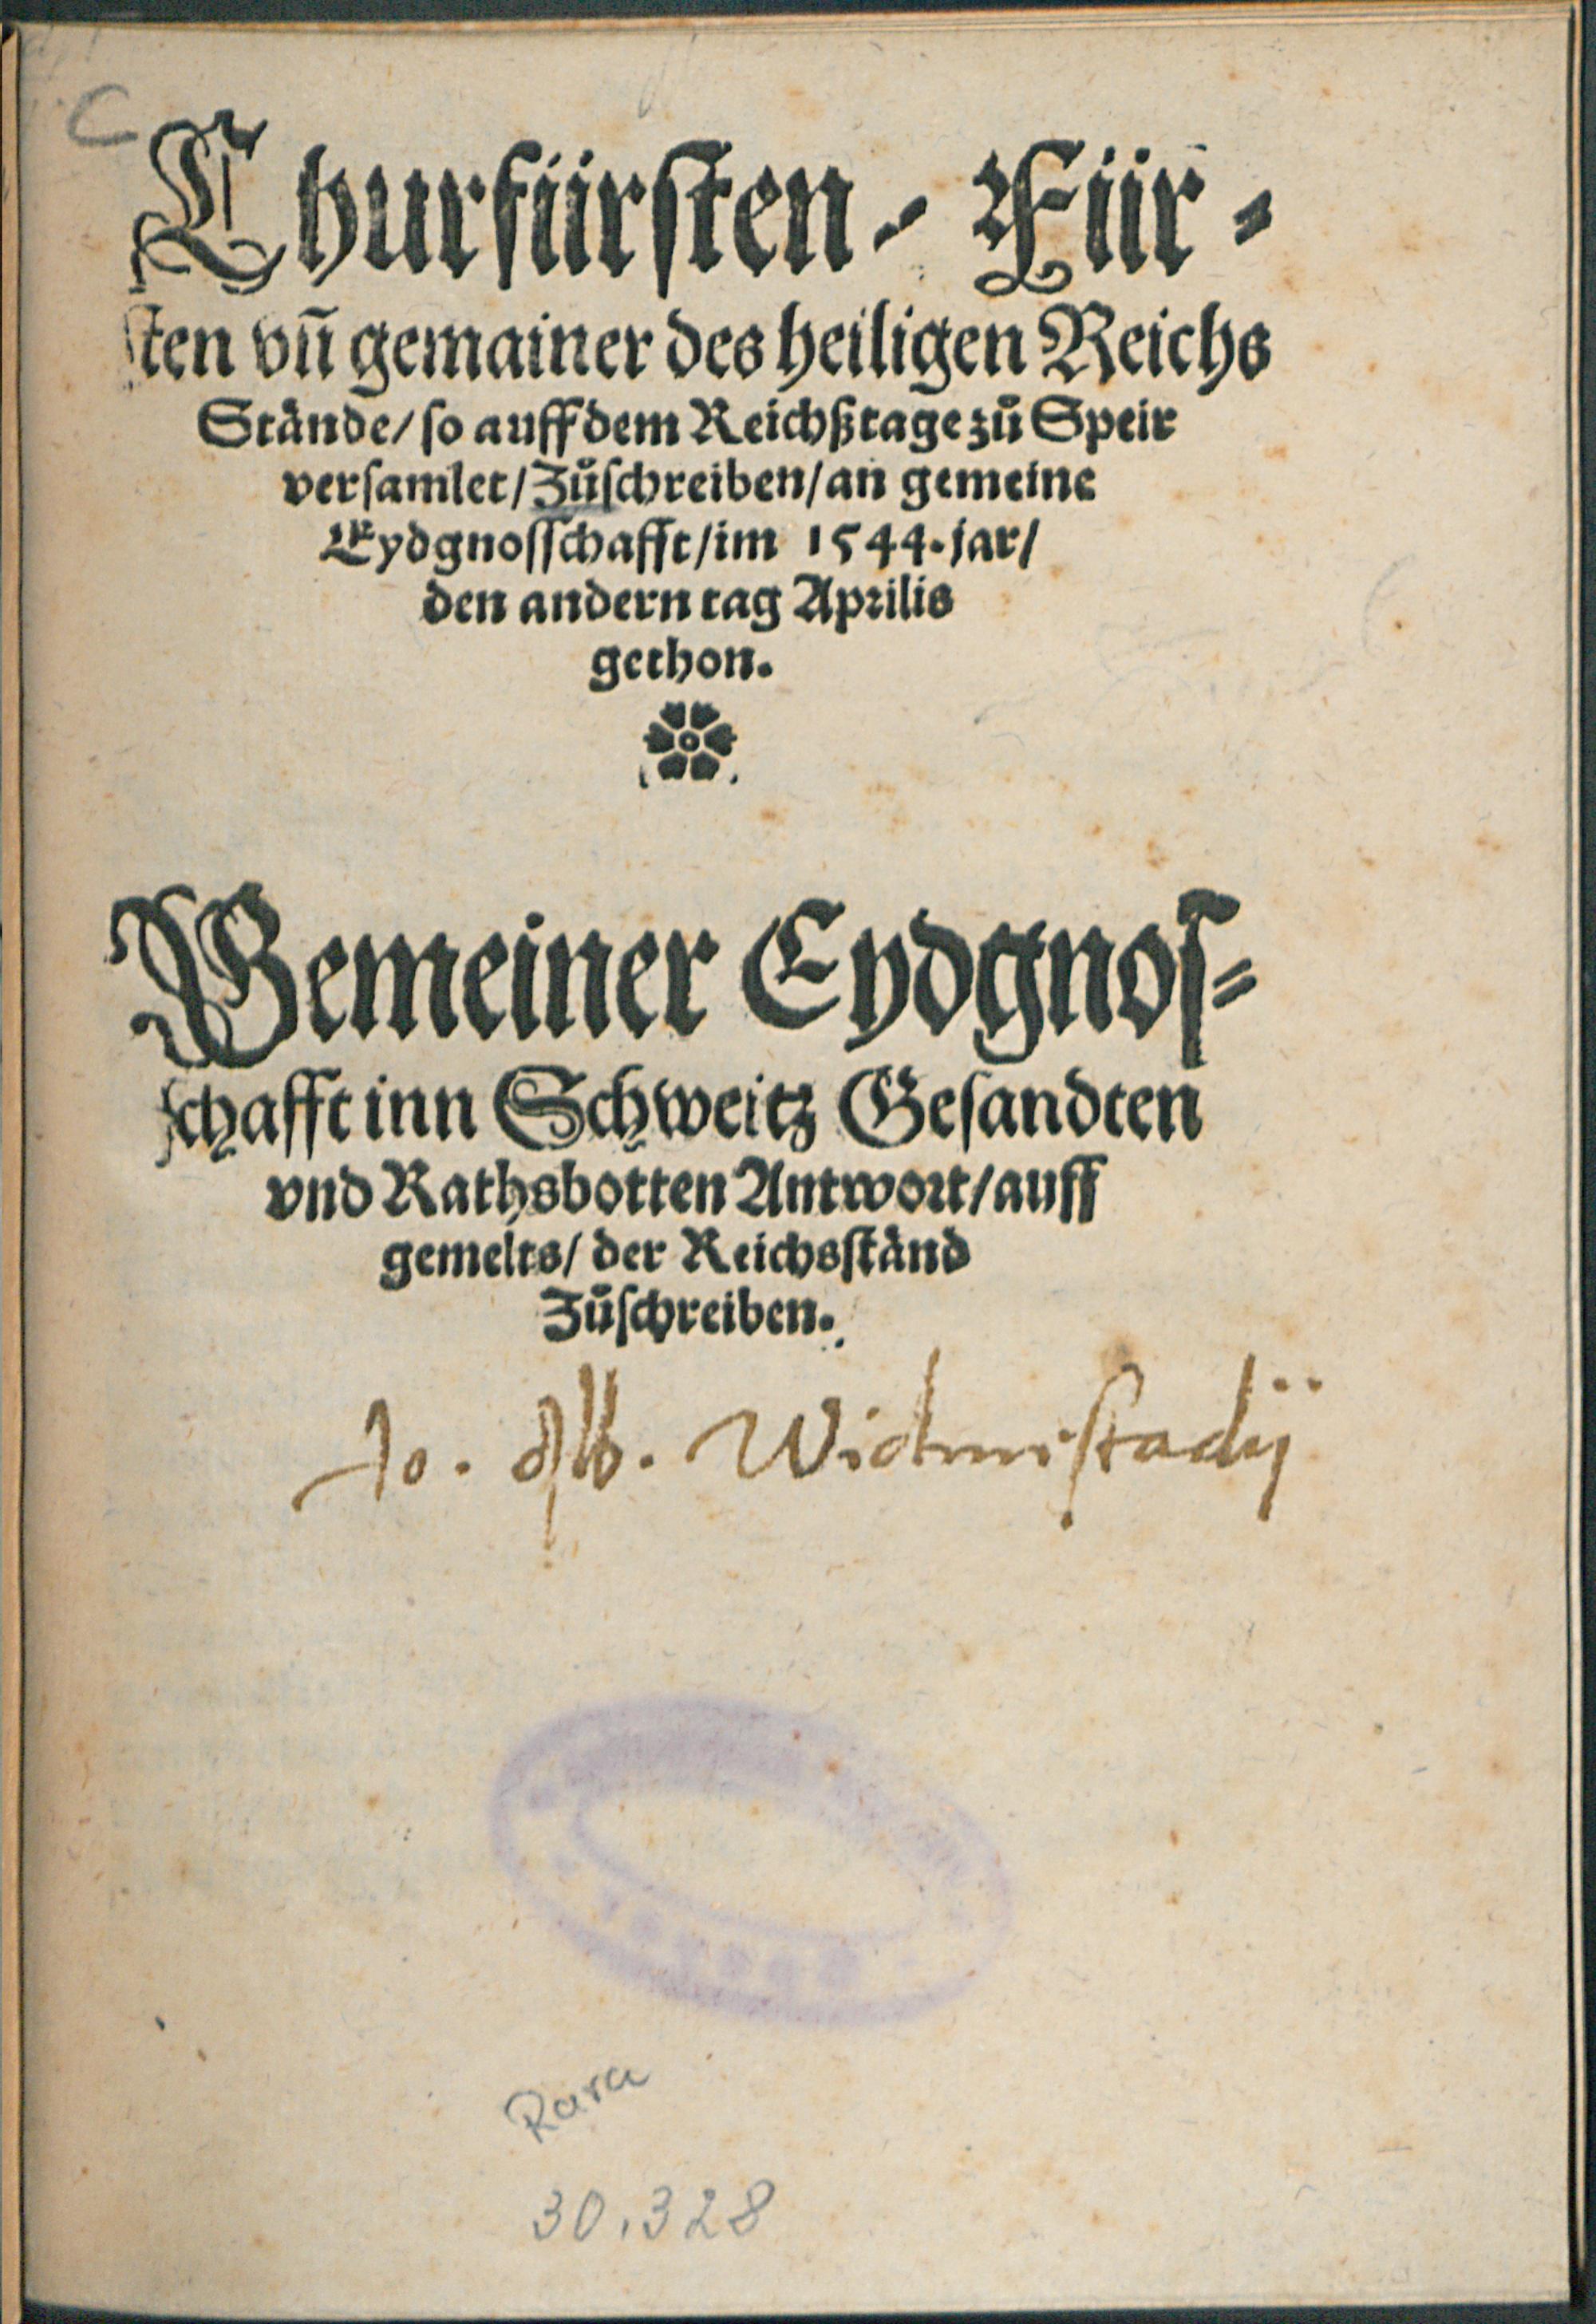 C
Churfürsten / Für⸗
ſten vñ gemainer des heiligen Reichs
Stånde / ſo auff dem Reichßtage zů Speir
verſamlet / Zůſchreiben / an gemeine
Eydgnoſſchafft / im 1544. jar /
den andern tag Aprilis
gethon.
Gemeiner Eydgnoſ⸗
ſchafft inn Schweitz Geſandten
vnd Rathsbotten Antwort / auff
gemelts / der Reichsſtånd
Zůſchreiben.
Jo. Alb. Widmeſtadij
Rara
30.328